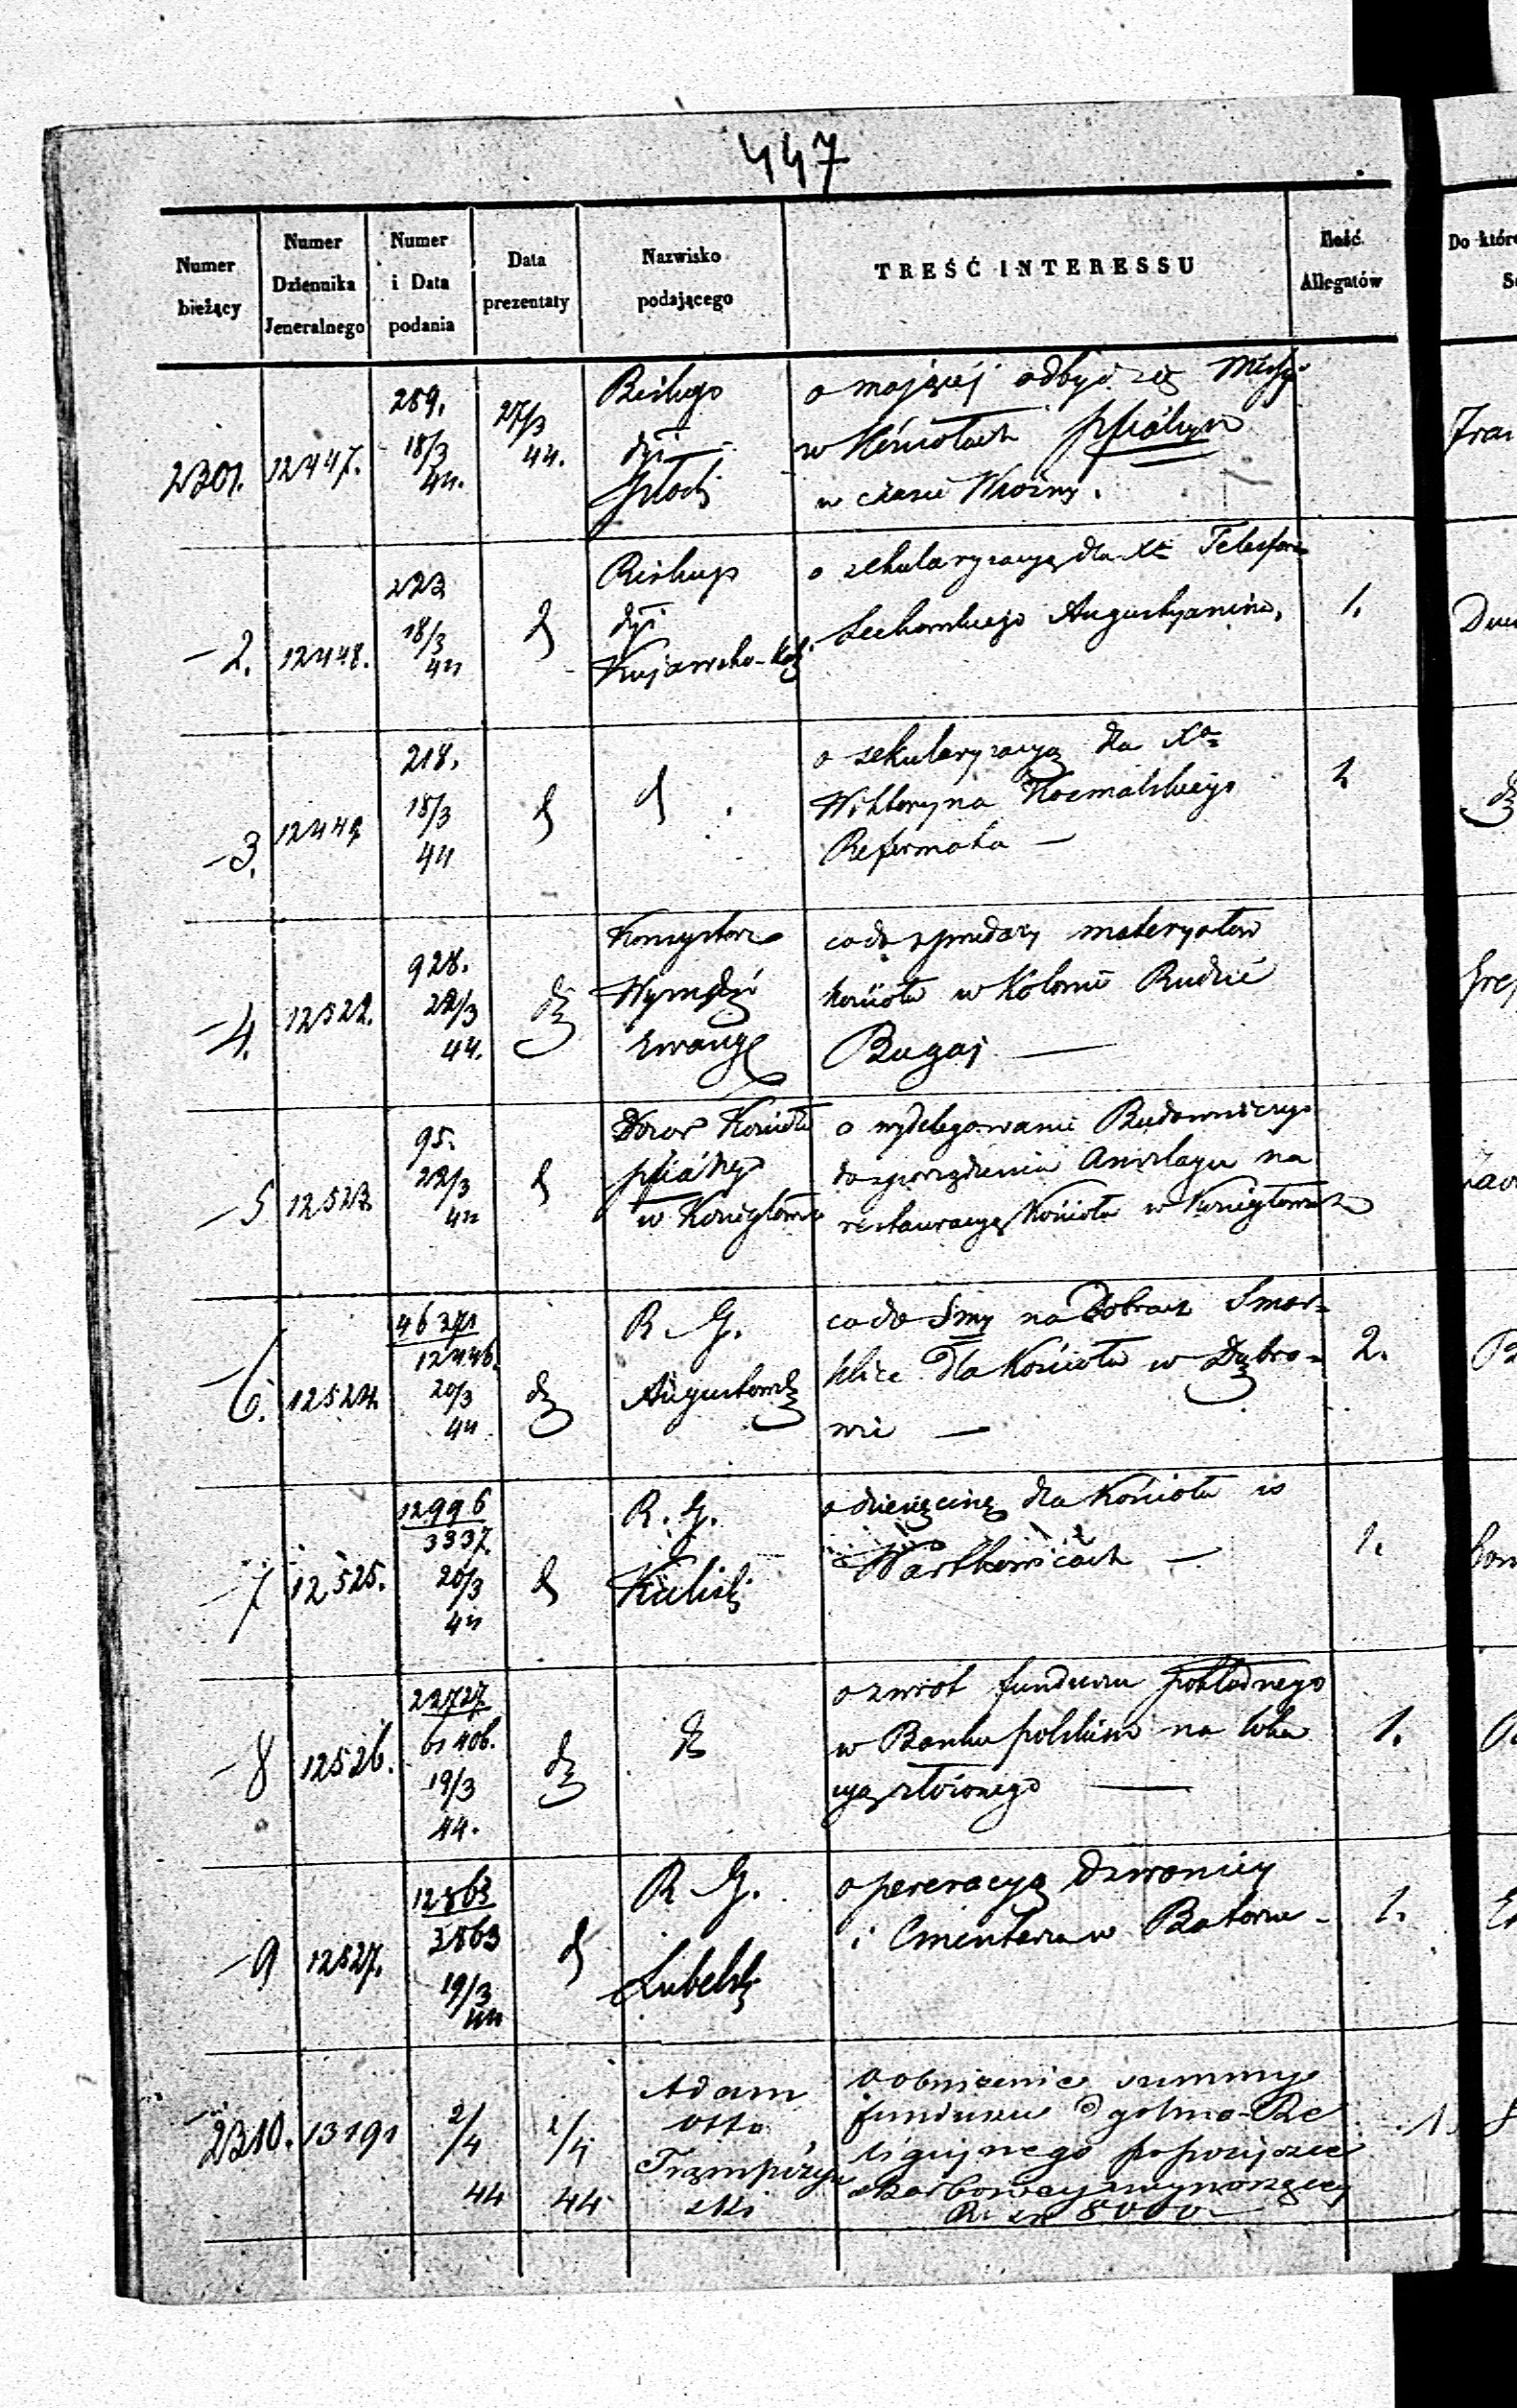 447
Numer bieżący
Numer Dziennika Jeneralnego
Numer i Data podania
Data prezentaty
Nazwisko podającego
TREŚĆ INTERESSU
Ilość Allegatów
Do które
2301. 12447. 289. 18/3 44. 27/3 44.
Biskup
dyi
o mającéj odbyć się
w Kościołach
w czasie Wiosny.
Fran
2. 12448. 223 18/3 44
Biskup
dyi
Kujawsko-Kal.
o sekularyzacyą dla Xa Telesfora
Augustyanina. 1.
3. 12449 218. 18/3 44
o sekularyzacyą dla Xa
Wiktoryna Kosmalskiego
Reformata —
4. 12522. 928. 22/3 44.
Konsystorz
Ewang
co do sprzedaży materyałów
kościoła w Kolonii Rudzie
Bugaj —
5 12523 95. 22/3 44
Dozor Kościoła
w Koniegłowach
o wydelegowanie Budowniczego
do sporządzenia Anszlagu na
restauracyą Kościoła w
6. 12524 46371 12446. 20/3 44
R. G.
Augustowski
co do Smy na Dobrach Smar=
klice dla Kościoła w Dąbro=
wie — 2.
7 12525. 12996 3337. 20/3 44
R. G.
Kaliski
o dziesięcinę dla Kościoła w
Wartkowicach — 1.
8 12526. 22727 61406. 19/3 44.
o zwrot funduszu pokładnego
w Banku polskim na loka
cyą złożonego — 1.
9 12527. 12863 3863 19/3 44
R. G.
Lubelski
o reperacyą Dzwonicy
i Cmentarza w Batorzu - 1.
2310. 13191 2/4 44 2/4 44
Adam
Otto
Trąmpczyń
ski
o obniżenie summy
funduszu Ogólno-Re
ligijnego po pożyczce
Skarbowey wynoszącey
Rs 8000 —